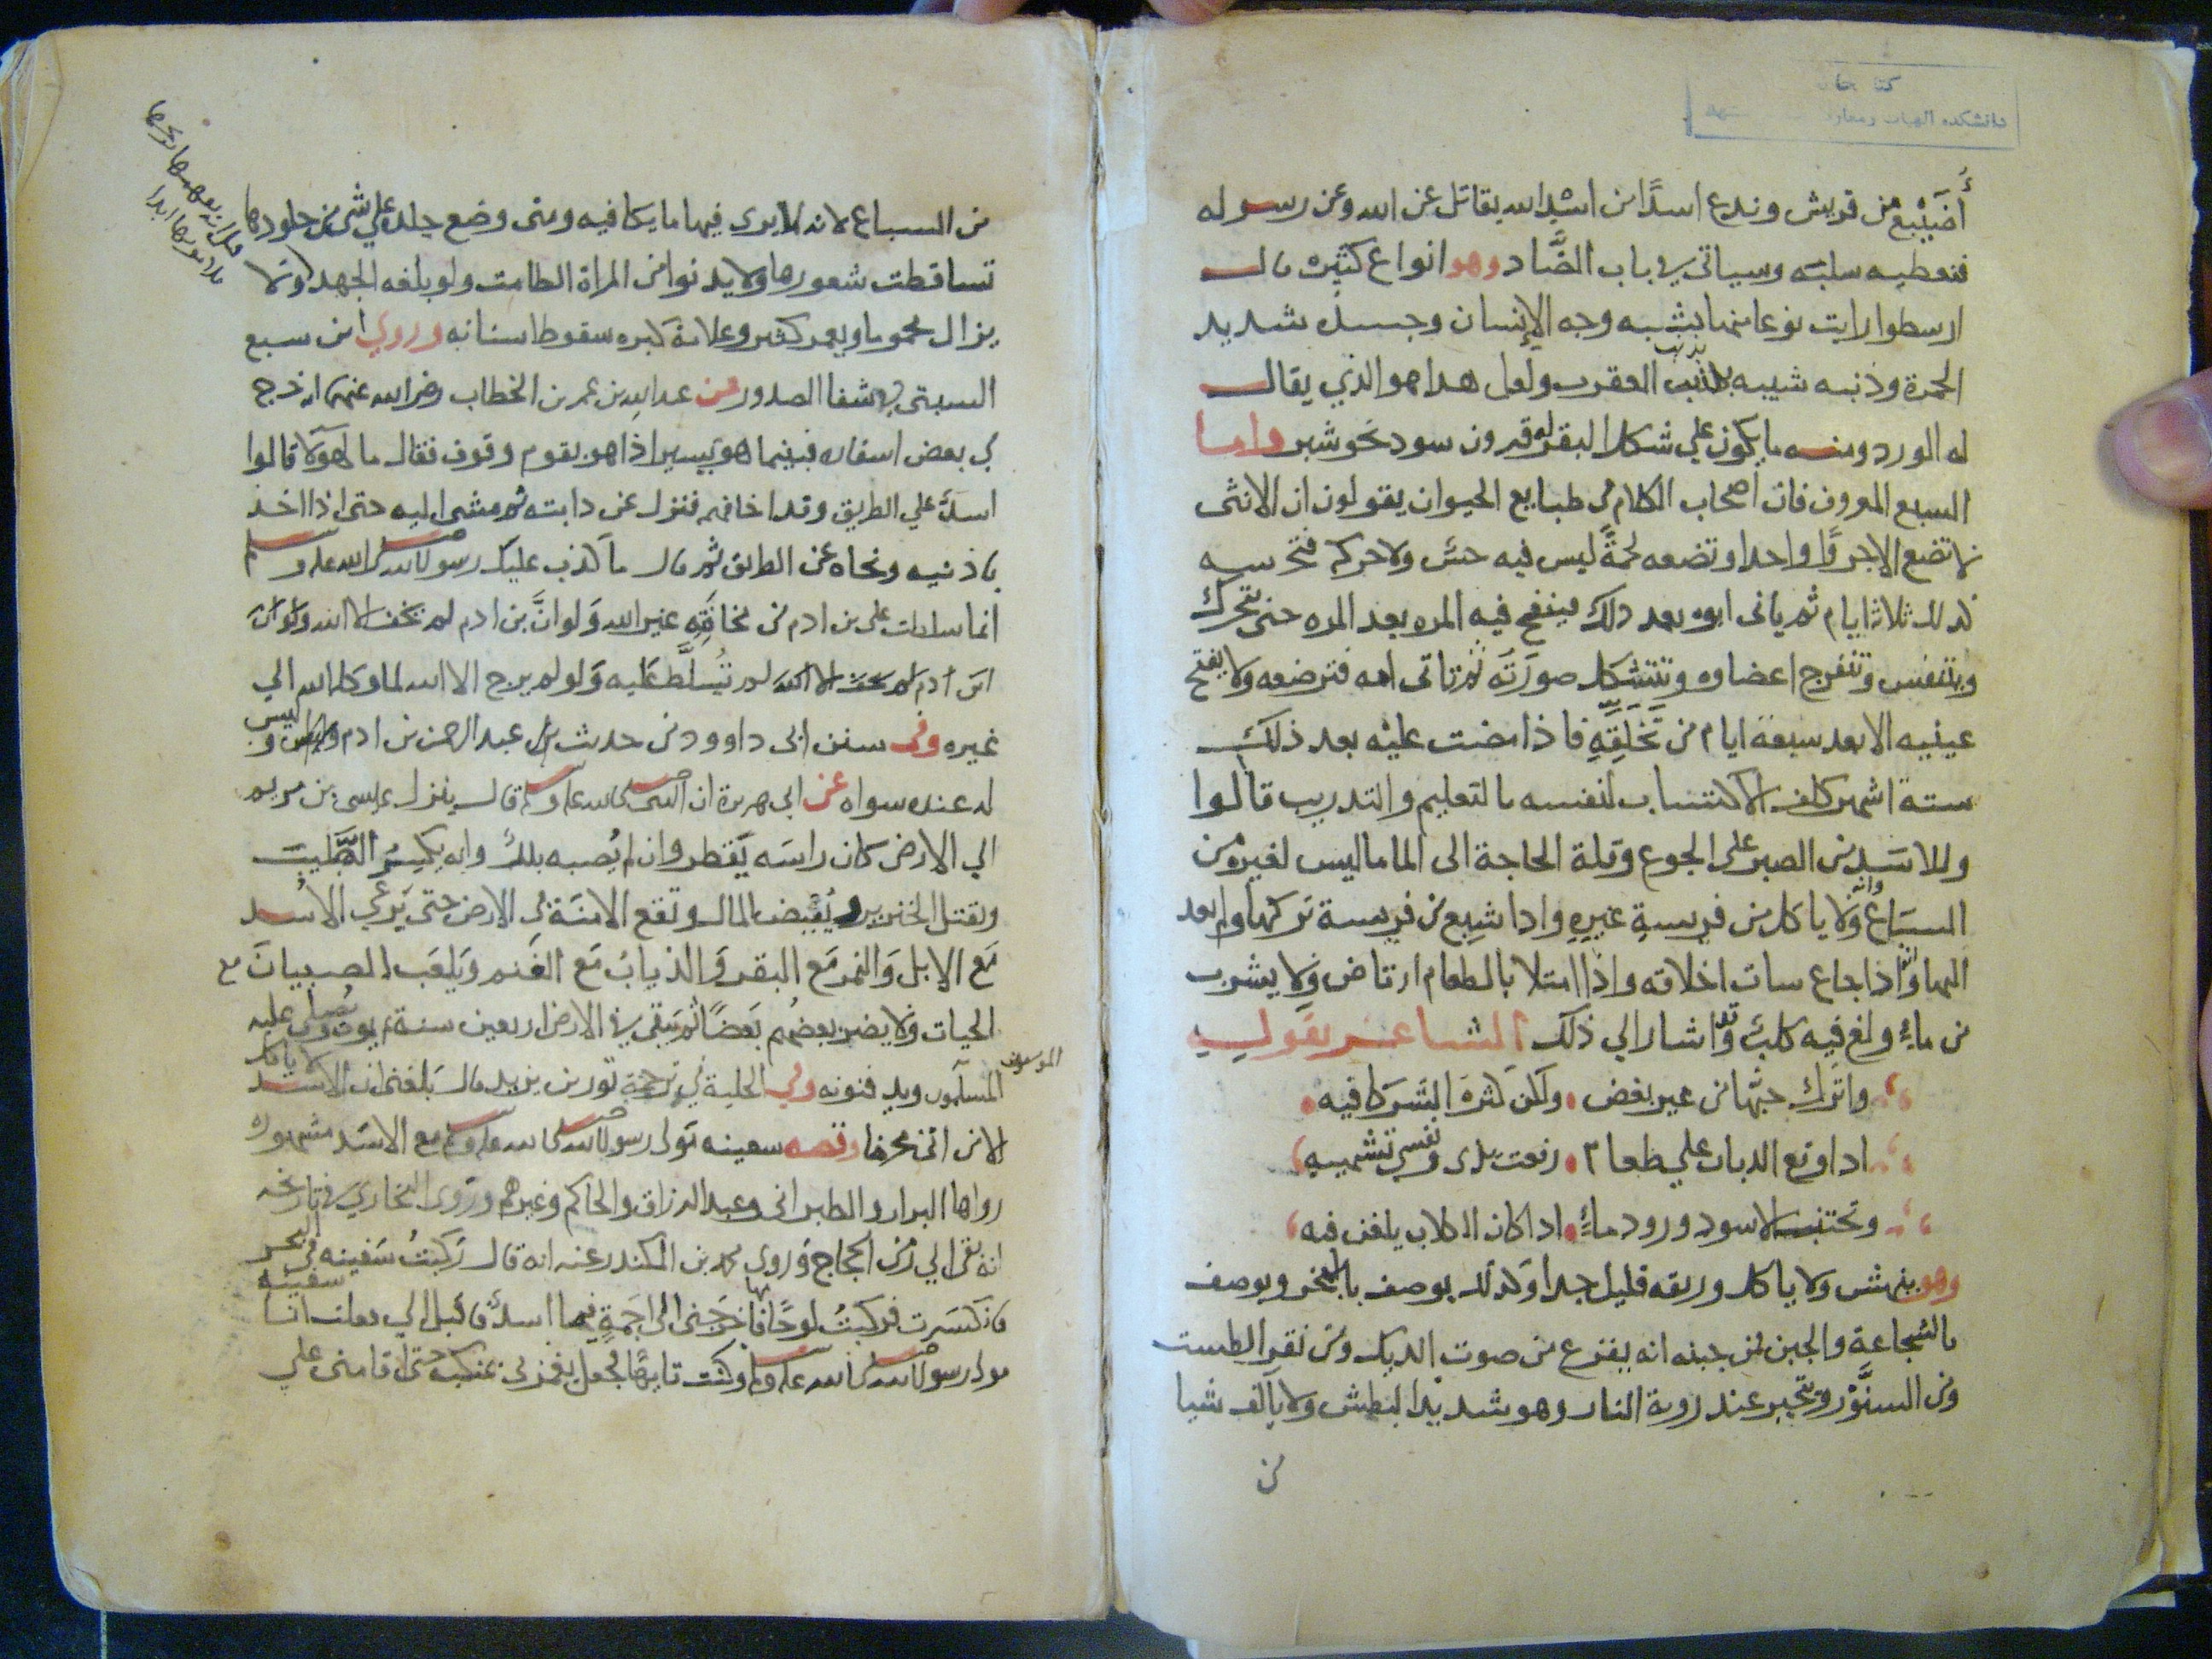 كتابخانه
دانشكده الهيات ومعارف
أضيبع من قريش وندع اسدًا من اسد الله يقاتل عن الله وعن رسوله
فنعطيه سلبه وسياتى فى باب الضَّاد وهو انواع كثيره قال
ارسطوا رايت نوعا منها يشبه وجه الإنسان وجسده شديد
الحمرة وذنبه شبيه بذنب العقرب ولعل هذا هو الذي يقال
له الورد ومنه ما يكون علي شكل البقر له قرون سود نحو شبر واما
السبع المعروف فان أصحاب الكلام فى طبايع الحيوان يقولون ان الانثى
لا تضع الا جروًا واحدا وتضعه لحمةً ليس فيه حس ولا حركه فتحرسه
كذلك ثلاثة ايام ثم ياتى ابوه بعد ذلك فينفخ فيه المره بعد المره حتى يتحرك
ويتنفس وتنفرج اعضاوه وتتشكل صورَتَه ثم تاتى امه فترضعه ولا يفتح
عينيه الا بعد سبعة ايام من تخلقِه فاذا مضت عليه بعد ذلك
ستة اشهر كلف الاكتساب لنفسه بالتعليم والتدريب قالوا
وللاسد من الصبر على الجوع وقلة الحاجة الى الما ما ليس لغيره من
السباع وانه لا ياكل من فريسة غيره واذا شبع من فريسة تركها ولم يعد
اليها واذا جاع سات اخلاقه واذا امتلا بالطعام ارتاض ولا يشرب
من ماءٍ ولغ فيه كلبٌ وقد اشار الي ذلك الشاعر بقوله
واترك حبّها من غير بغض ولكن كثرة الشركا فيه
اذا وقع الذباب علي طعام رفعت يدى ونفسى تشتهيه
وتجتنب الاسود ورود ماءٍ اذا كان الكلاب يلغن فيه
وهو ينهش ولا ياكل وريقه قليل جدا وكذلك يوصف بالبخر ويوصف
بالشجاعة والجبن فمن جبنه انه يفزع من صوت الديك ومن نقر الطست
ومن السنَّور ويتحير عند روية النار وهو شديد البطش ولا يالف شيا
من
من السباع لانه لا يرى فيها ما يكافيه ومتى وضع جلده علي شى من جلودها
تساقطت شعورها ولا يدنوا من المراة الطامث ولو بلغه الجهد ولا
يزال محموما ويعمر كثير وعلامة كبره سقوط اسنانه وروي ابن سبع
السبتي فى شفا الصدور عن عبد الله بن عمر بن الخطاب رضى الله عنهما انه خرج
في بعض اسفاره فبينما هو يسير اذا هو بقوم وقوف فقال ما لهولا قالوا
اسدٌ علي الطريق وقد اخافهم فنزل عن دابته ثم مشى اليه حتى اذا اخذ
باذنيه ونحاه عن الطريق ثم قال ما كذب عليك رسول الله صلى الله عليه وسلم
انما سلطت على بن ادم من مخافته غير الله ولو انَّ بن ادم لم يخف الا الله
لم تُسلَّط عليه ولو لم يرج الا الله لما وكله الله الي
غيره وفى سنن ابى داوود من حديث عبد الرحمن بن ادم وليس
له عنده سواه عن ابى هريرة ان النبى صلى الله عليه وسلم قال ينزل عيسى بن مريم
الي الارض كان راسه يقطر وان لم يُصبه بلل وانه يكسر الصَّليب
ويقتل الخنزير ويُفيض المال وتقع الامنة فى الارض حتى يرعي الاسد
مع الابل والنمر مع البقر والذياب مع الغنم ويلعب الصبيان مع
الحيات ولا يضر بعضُهم بعضًا ثم يبقى فى الارض اربعين سنة ثم يموت ويُصلى عليه
المسلمون ويدفنونه وفي الحلية في ترجمة ثور بن يزيد قال بلغنى ان الاسد لا ياكل
الا من اتى محرما وقصه سفينه مولى رسول الله صلى الله عليه وسلم مع الاسد مشهوره
رواها البزار والطبرانى وعبد الرزاق والحاكم وغيرهم وروى البخاري فى تاريخه
انه بقى الي زمن الحجاج وروى محمد بن المنكدر عنه انه قال ركبتُ سفينه فى البحر
فانكسرت فركبتُ لوحًا فاخرجنى الى اجمةٍ فيها اسدٌ فاقبل الي فقلت انا سفينه
مولى رسول الله صلى الله عليه وسلم وكنت تايهًا فجعل يغمزنى بمنكبه حتى اقامنى على